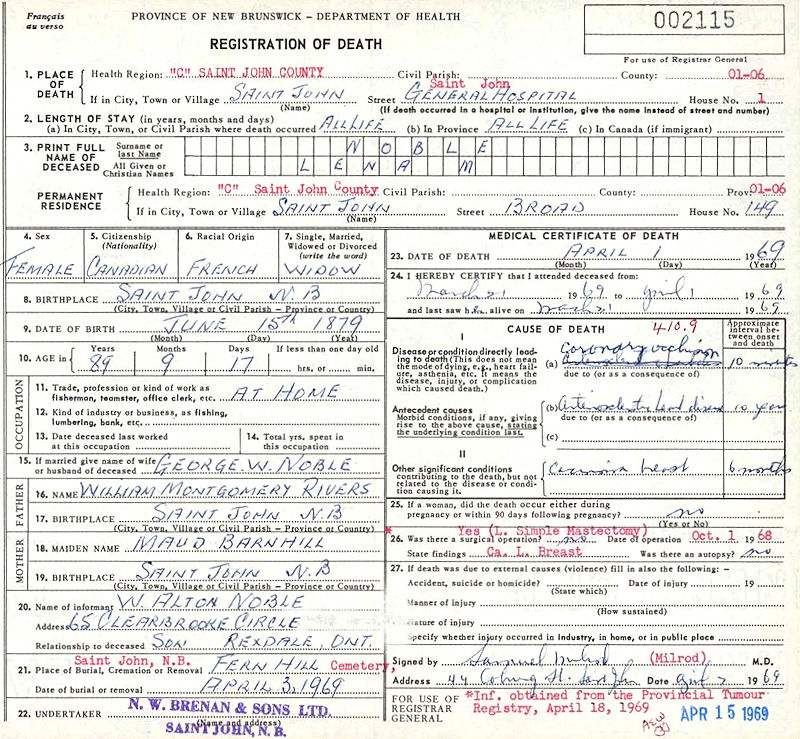 Français
au verso
PROVINCE OF NEW BRUNSWICK – DEPARTMENT OF HEALTH
002115
REGISTRATION OF DEATH
For use of Registrar General
1. PLACE OF DEATH Health Region: "C" SAINT JOHN COUNTY Civil Parish: County: 01-06
If in City, Town or Village SAINT JOHN Street Saint John GENERAL HOSPITAL House No. 1
(Name) (If death occurred in a hospital or institution, give the name instead of street and number)
2. LENGTH OF STAY (in years, months and days)
(a) In City, Town, or Civil Parish where death occurred ALL LIFE (b) In Province ALL LIFE (c) In Canada (if immigrant)
3. PRINT FULL NAME OF DECEASED Surname or last Name NOBLE
All Given or Christian Names LENA M
PERMANENT RESIDENCE Health Region: "C" Saint John County Civil Parish: County: Prov: 01-06
If in City, Town or Village SAINT JOHN Street BROAD House No. 149
(Name)
4. Sex FEMALE
5. Citizenship (Nationality) CANADIAN
6. Racial Origin FRENCH
7. Single, Married, Widowed or Divorced (write the word) WIDOW
8. BIRTHPLACE SAINT JOHN N.B
(City, Town, Village or Civil Parish – Province or Country)
9. DATE OF BIRTH JUNE 15TH 1879
(Month) (Day) (Year)
10. AGE in Years 89 Months 9 Days 17 If less than one day old hrs. or min.
OCCUPATION
11. Trade, profession or kind of work as fisherman, teamster, office clerk, etc. AT HOME
12. Kind of industry or business, as fishing, lumbering, bank, etc.
13. Date deceased last worked at this occupation
14. Total yrs. spent in this occupation
15. If married give name of wife or husband of deceased GEORGE. W. NOBLE
FATHER
16. NAME WILLIAM MONTGOMERY RIVERS
17. BIRTHPLACE SAINT JOHN N.B
(City, Town, Village or Civil Parish – Province or Country)
MOTHER
18. MAIDEN NAME MAUD BARNHILL
19. BIRTHPLACE SAINT JOHN N.B
(City, Town, Village or Civil Parish – Province or Country)
20. Name of informant W. ALTON NOBLE
Address 65 CLEARBROOKE CIRCLE
Relationship to deceased SON REXDALE, ONT.
Saint John, N.B.
21. Place of Burial, Cremation or Removal FERN HILL Cemetery,
Date of burial or removal APRIL 3, 1969
22. UNDERTAKER N. W. BRENAN & SONS LTD.
(Name and address)
SAINT JOHN, N. B.
MEDICAL CERTIFICATE OF DEATH
23. DATE OF DEATH APRIL 1 1969
(Month) (Day) (Year)
24. I HEREBY CERTIFY that I attended deceased from:
March 21 1969 to April 1 1969
and last saw her alive on 1969
I CAUSE OF DEATH 410.9
Approximate interval between onset and death
Disease or condition directly leading to death (This does not mean the mode of dying, e.g., heart failure, asthenia, etc. It means the disease, injury, or complication which caused death.)
(a) Coronary occlusion 10
due to (or as a consequence of)
Antecedent causes
Morbid conditions, if any, giving rise to the above cause, stating the underlying condition last.
(b) heart disease 10 years
due to (or as a consequence of)
(c)
II
Other significant conditions contributing to the death, but not related to the disease or condition causing it.
Carcinoma breast 6 months
25. If a woman, did the death occur either during pregnancy or within 90 days following pregnancy? no
(Yes or No)
* Yes (L. Simple Mastectomy)
26. Was there a surgical operation? no Date of operation Oct. 1 1968
State findings Ca. L. Breast Was there an autopsy? no
27. If death was due to external causes (violence) fill in also the following: –
Accident, suicide or homicide? Date of injury 19
(State which)
Manner of injury
(How sustained)
Nature of injury
Specify whether injury occurred in industry, in home, or in public place
Signed by Samuel (Milrod) M.D.
Address 44 Coburg St. Saint John Date April 2 1969
FOR USE OF REGISTRAR GENERAL
*Inf. obtained from the Provincial Tumour
Registry, April 18, 1969
APR 15 1969